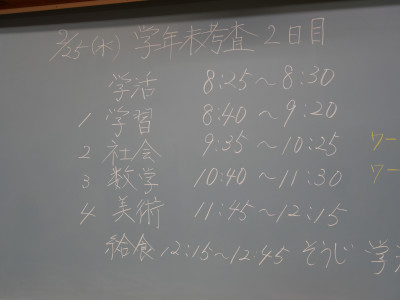 2/25(水) 学年末考査 2日目
学活 8:25〜8:30
1 学習 8:40〜9:20
2 社会 9:35〜10:25 ワー
3 数学 10:40〜11:30 ワー
4 美術 11:45〜12:15
給食 12:15〜12:45 そうじ 学活